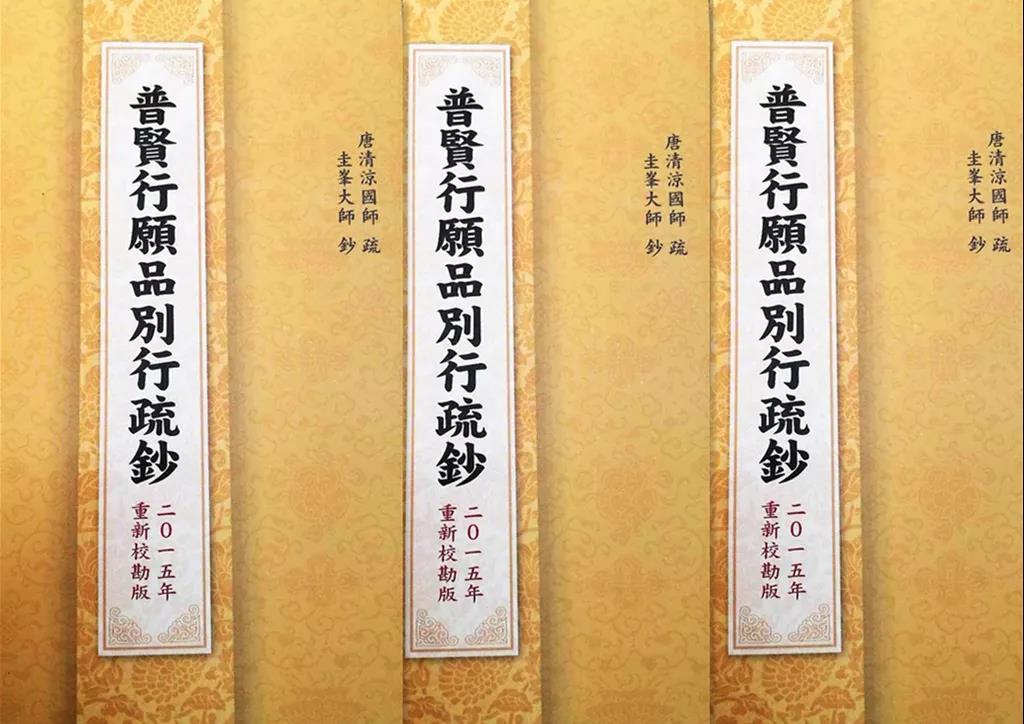 普賢行願品別行疏鈔
二０一五年
重新校勘版
唐清涼國師 疏
圭峯大師 鈔
普賢行願品別行疏鈔
二０一五年
重新校勘版
唐清涼國師 疏
圭峯大師 鈔
普賢行願品別行疏鈔
二０一五年
重新校勘版
唐清涼國師 疏
圭峯大師 鈔